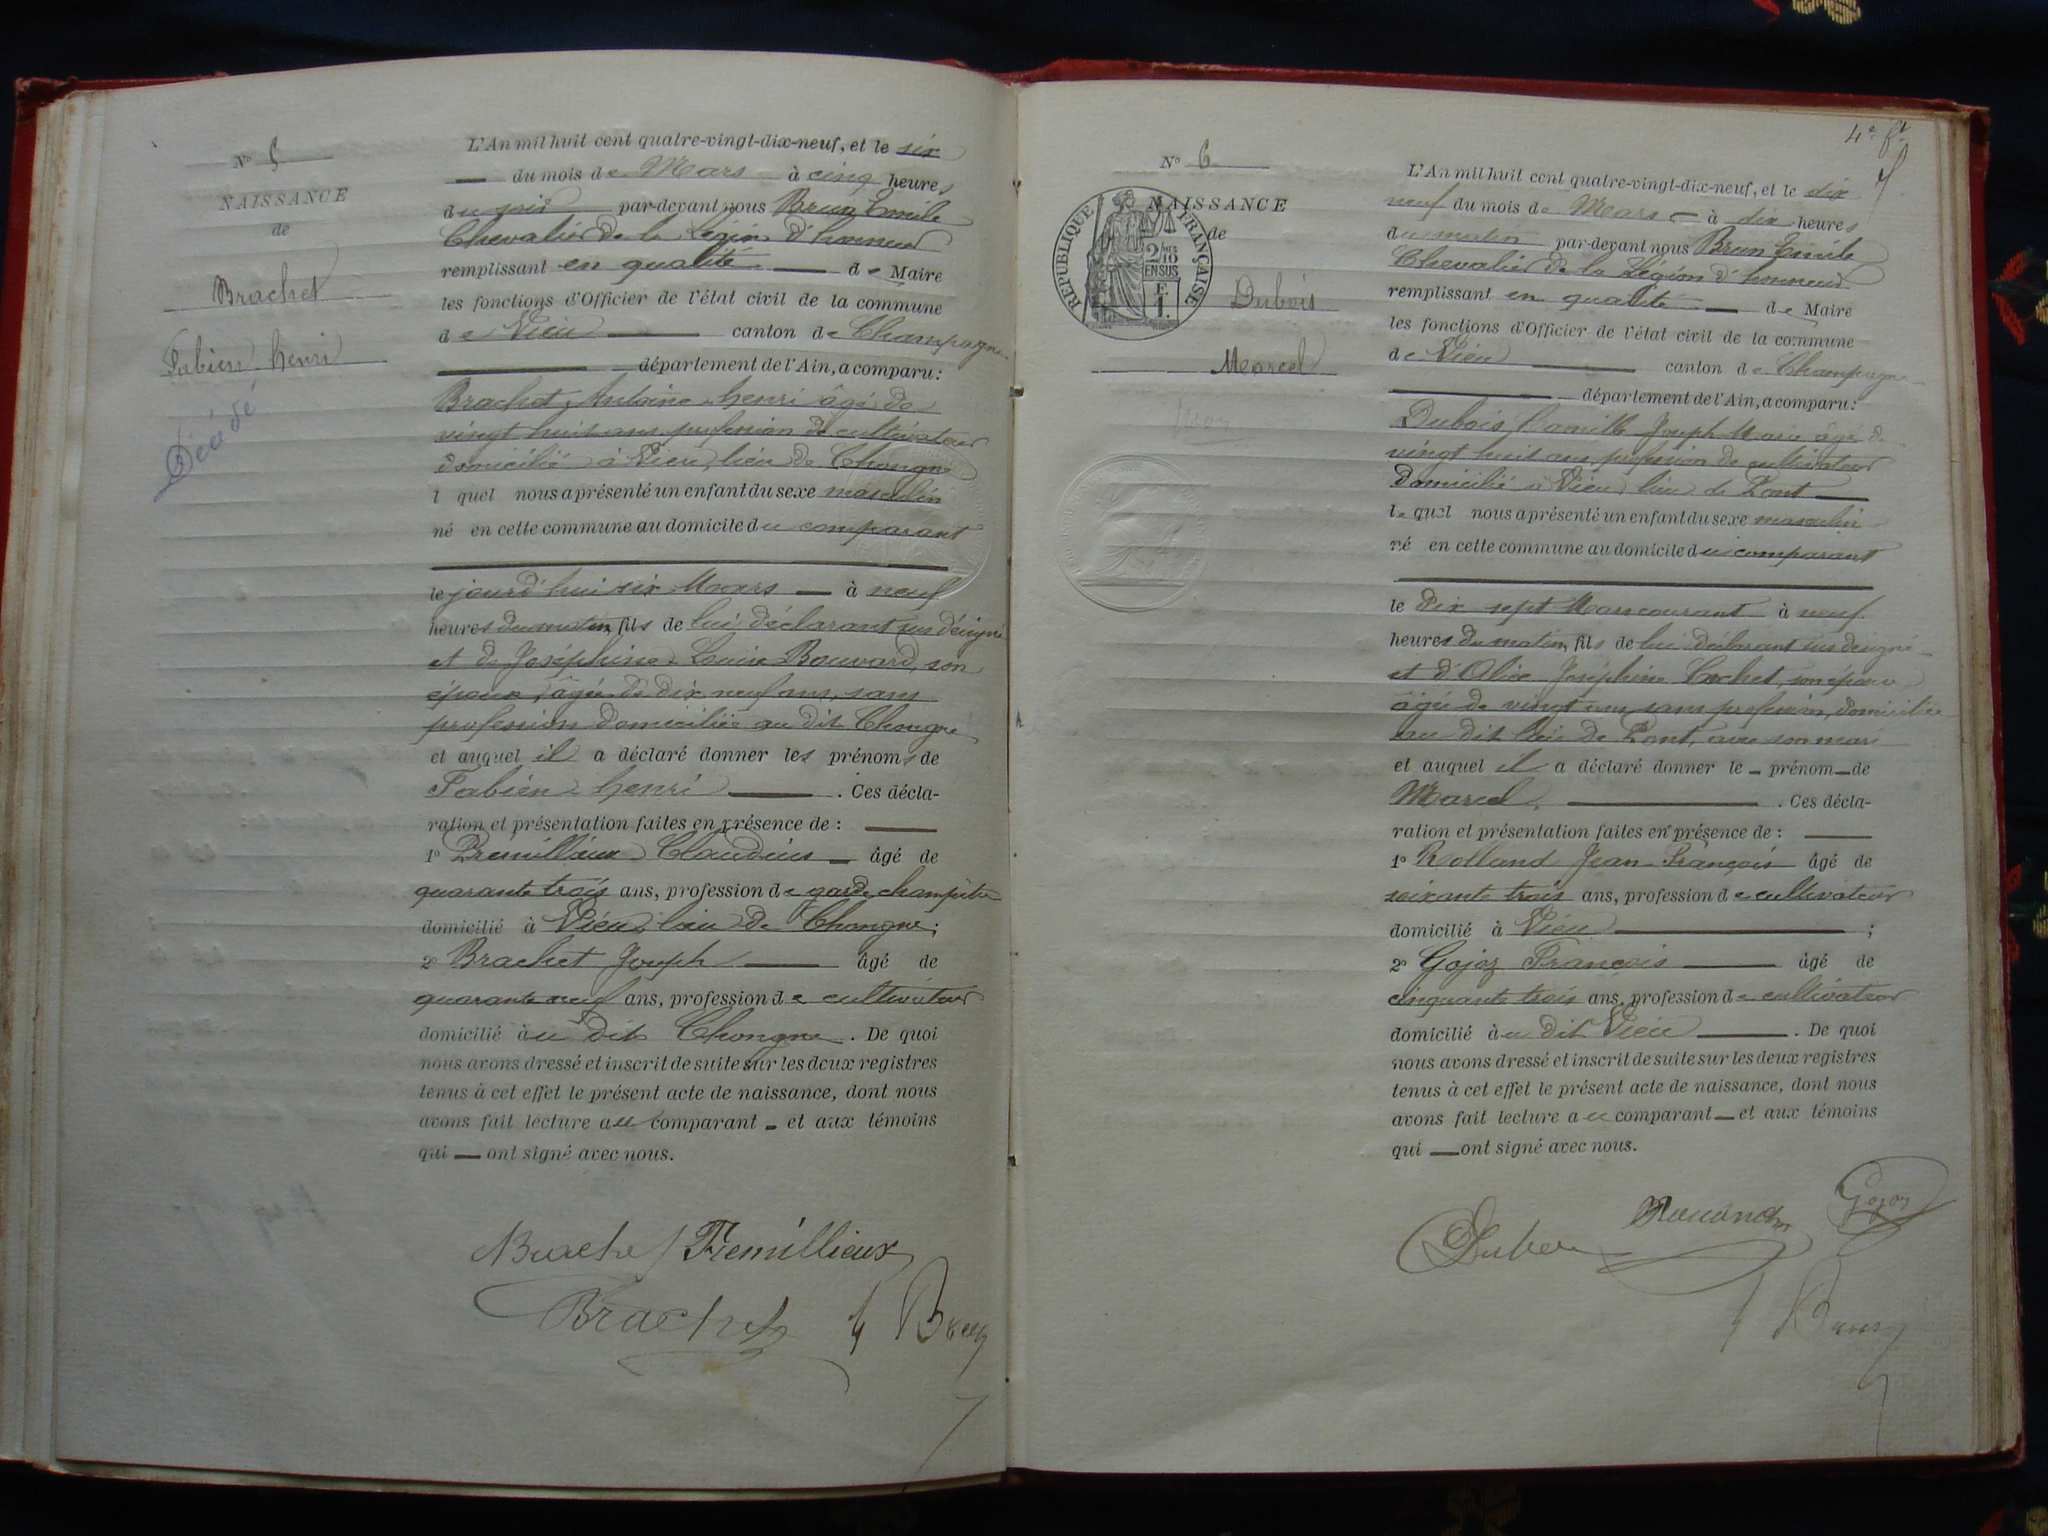 N° 5
NAISSANCE
de
Brachet
Fabien Henri
Décédé
L'An mil huit cent quatre-vingt-dix-neuf, et le six
du mois de Mars à cinq heures
du soir par-devant nous Brun Emile
Chevalier de la Légion d'honneur
remplissant en qualité de Maire
les fonctions d'Officier de l'état civil de la commune
de Vieu canton de Champagne
département de l'Ain, a comparu:
Brachet Antoine Henri âgé de
vingt huit ans profession de cultivateur
domicilié à Vieu, lieu de Chongne
l quel nous a présenté un enfant du sexe masculin
né en cette commune au domicile du comparant
le jourd'hui six Mars à neuf
heures du matin, fils de lui déclarant sus désigné
et de Joséphine Louise Bouvard, son
épouse, âgée de dix neuf ans, sans
profession domiciliée au dit Chongne
et auquel il a déclaré donner les prénoms de
Fabien Henri . Ces décla-
ration et présentation faites en présence de :
1° Premillieux Claudius âgé de
quarante trois ans, profession de garde champêtre
domicilié à Vieu, lieu de Chongne;
2° Brachet Joseph âgé de
quarante neuf ans, profession de cultivateur
domicilié au dit Chongne . De quoi
nous avons dressé et inscrit de suite sur les deux registres
tenus à cet effet le présent acte de naissance, dont nous
avons fait lecture au comparant et aux témoins
qui ont signé avec nous.
Brachet Fremillieux
Brachet Brun
4e ft
N° 6
NAISSANCE
de
REPUBLIQUE FRANÇAISE
2/10
EN SUS
F.
1.
Dubois
Marcel
L'An mil huit cent quatre-vingt-dix-neuf, et le dix
neuf du mois de Mars à dix heures
du matin par-devant nous Brun Emile
Chevalier de la Légion d'honneur
remplissant en qualité de Maire
les fonctions d'Officier de l'état civil de la commune
de Vieu canton de Champagne
département de l'Ain, a comparu:
Dubois Camille Joseph Marie âgé de
vingt huit ans, profession de cultivateur
domicilié à Vieu, lieu de Pont
le quel nous a présenté un enfant du sexe masculin
né en cette commune au domicile du comparant
le dix sept Mars courant à neuf
heures du matin, fils de lui déclarant sus désigné
et d'Alice Joséphine Cochet, son épouse
âgée de vingt ans, sans profession, domiciliée
au dit lieu de Pont, avec son mari
et auquel il a déclaré donner le prénom de
Marcel . Ces décla-
ration et présentation faites en présence de :
1° Rolland Jean François âgé de
soixante trois ans, profession de cultivateur
domicilié à Vieu ;
2° Gojoz François âgé de
cinquante trois ans, profession de cultivateur
domicilié au dit Vieu . De quoi
nous avons dressé et inscrit de suite sur les deux registres
tenus à cet effet le présent acte de naissance, dont nous
avons fait lecture au comparant et aux témoins
qui ont signé avec nous.
Gojoz
Brun